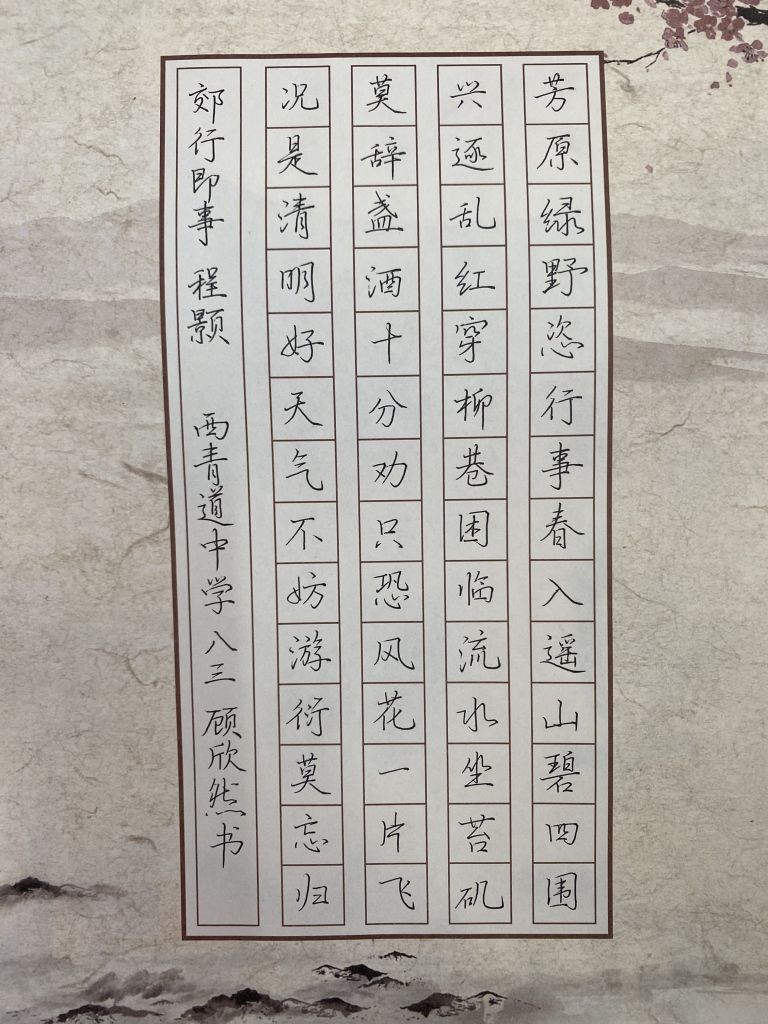 芳原绿野恣行事春入遥山碧四围
兴逐乱红穿柳巷困临流水坐苔矶
莫辞盏酒十分劝只恐风花一片飞
况是清明好天气不妨游衍莫忘归
郊行即事 程颢 西青道中学 八三 顾欣然书